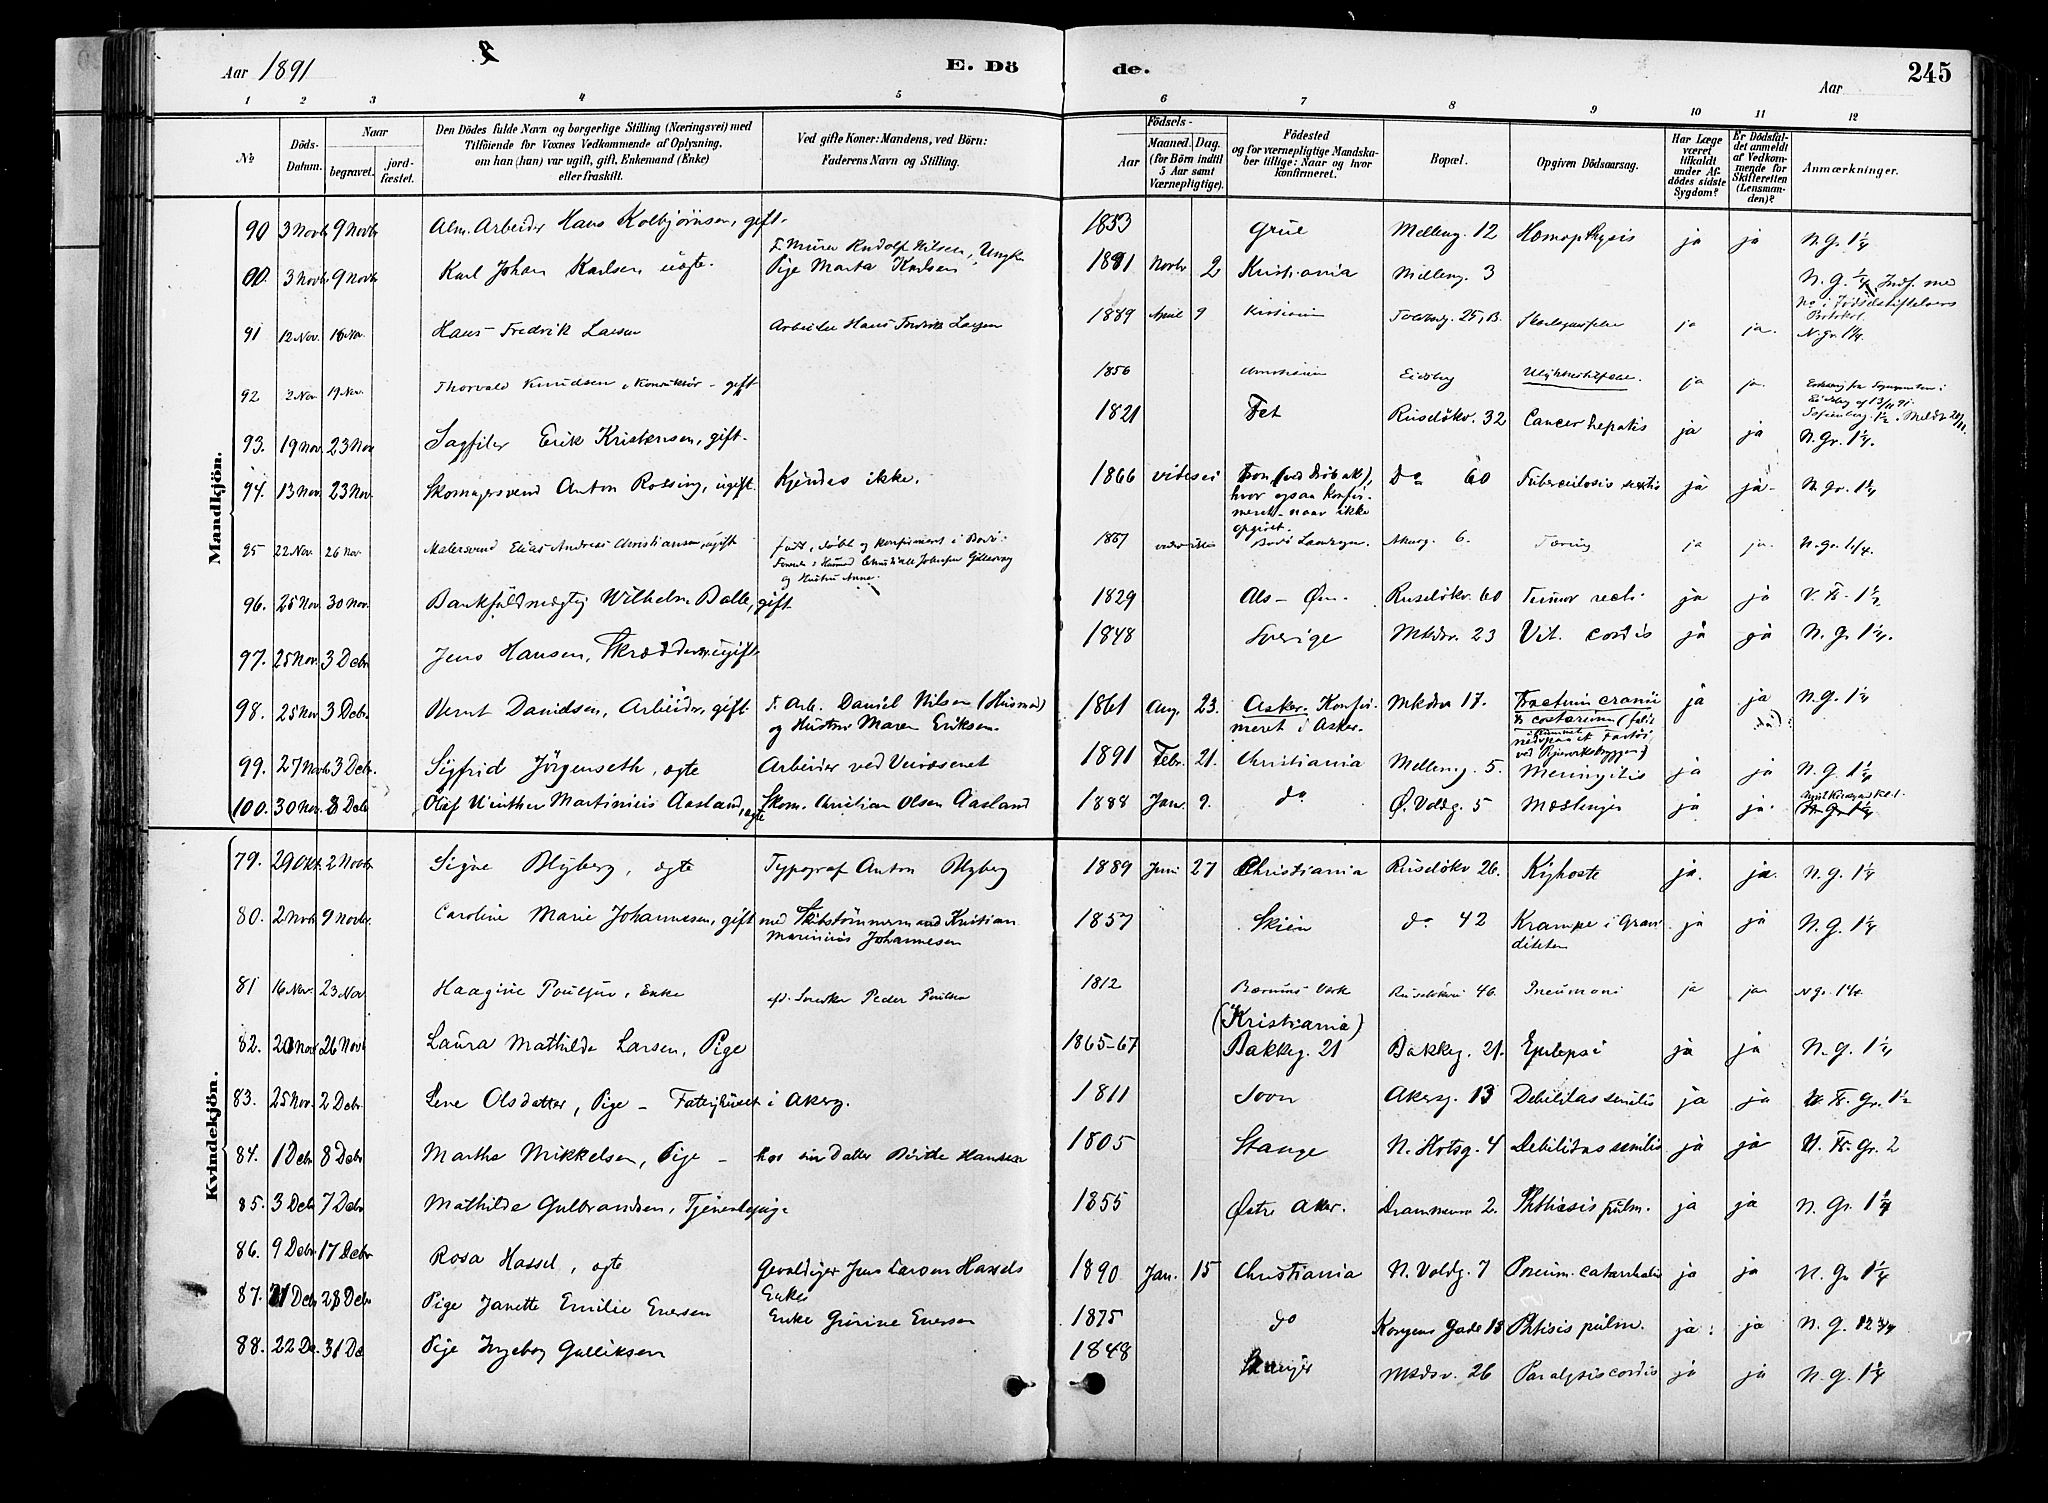 Aar 1891
E. Dö
de.
Aar
245
1 2 3 4 5 6 7 8 9 10 11 12
No.
Döds-Datum.
Naar
begravet.
jord-fæstet.
Den Dödes fulde Navn og borgerlige Stilling (Næringsvei) med
Tilföiende for Voxnes Vedkommende af Oplysning,
om han (hun) var ugift, gift, Enkemand (Enke)
eller fraskilt.
Ved gifte Koner: Mandens, ved Börn:
Faderens Navn og Stilling.
Födsels-
Aar
Maaned. Dag.
(for Börn indtil
5 Aar samt
Værnepligtige).
Födested
og for værnepligtige Mandska-
ber tillige: Naar og hvor
konfirmeret.
Bopæl.
Opgiven Dödsaarsag.
Har Læge
været
tilkaldt
under Af-
dödes sidste
Sygdom?
Er Dödsfal-
det anmeldt
af Vedkom-
mende for
Skifteretten
(Lensman-
den)?
Anmærkninger.
Mandkjön.
90 3 Novbr 9 Novbr Alm. Arbeider Hans Kolbjørnsen, gift. 1853 Grue Melleng. 12 Hæmopthysis ja ja N. G. 1 1/4
00. 3 Novbr 9 Novbr Karl Johan Karlsen uægte. F. Murer Rudolf Nilsen, Ungk
Pige Marta Karlsen 1891 Novbr 2 Kristiania Melleng. 3 N. G. 1/4 Indf. med
No i Fødselsstiftelsens
Protokol
91 12 Nov. 18 Nov. Hans Fredrik Larsen Arbeider Hans Fredrik Larsen 1889 April 9 Kristiania 25, B. ja ja. N. Gr. 1 1/4.
92 2 Nov. 19 Nov. Thorvald Knudsen, Konduktør - gift 1856 Eidsberg Ulykkestilfælde. ja ja.
Eidsberg af 13/11 91.
93. 19 Nov 23 Nov Sagfiler Erik Kristensen, gift. 1821 Fet Ruseløkv. 32 Cancer hepatis ja ja N. Gr. 1 1/4.
94. 13 Nov 23 Nov. Skomagersvend Anton Rolsing, ugift. Kjendes ikke. 1866 vides ei Tron (ved Drøbak),
hvor ogsaa konfir-
meret - naar ikke
opgivet. Do 60 Tuberculosis ja ja N. Gr. 1 1/4
95 22 Nov. 26 Nov Malersvend Elias Andreas Christiansen, ugift født, døbt og konfirmeret i Bodø.
og Hustru Anne. 1867 Bodø Akersg. 6. Tæring ja ja. N. Gr. 1 1/4.
96. 25 Nov 30 Nov. Bankfuldmægtig Wilhelm Balle, gift 1829 Als - Øen. Ruseløkv. 60 Tumor recti ja ja V. Fr. 1 1/2
97. 25 Nov. 3 Debr Jens Hansen, Skrædders. ugift 1848 Sverige Mkdsv. 23 Vit. cordis ja ja N. G. 1 1/4.
98. 25 Nov 3 Debr. Bernt Davidsen, Arbeider, gift F. Arb. Daniel Nilsen (Husmand)
og Hustru Maren Eriksen. 1861 Aug. 23. Asker. Konfir-
meret i Asker. Mkdsv. 17. Fractura cranii
& costarum ja ja N. G. 1 1/4
99. 27 Novbr 3 Debr. Sigfrid Jørgenseth, ægte Arbeider ved Veivæsenet 1891 Febr. 21. Christiania Melleng. 5. Meningitis ja ja N. G. 1 1/4
100. 30 Nov. 8 Debr Olaf Winther Martinius Aasland, ægte Skom. Christian Olsen Aasland 1888 Jan. 9. do Ø. Voldg. 5 Mæslinger ja ja.
Kvindekjön.
79. 29 Okt. 2 Novbr Signe Blyberg, ægte Typograf Anton Blyberg 1889 Juni 27 Christiania Ruseløkv 26. Kighoste ja. ja. N. G. 1 1/4
80. 2 Novbr 9 Novbr. Caroline Marie Johannesen, gift med Skibstømmermand Kristian
Marinius Johannesen 1857 Skien do 42 Krampe i Gravi-
diteten ja ja N. G. 1 1/4
81 16 Nov. 23 Nov. Haagine Poulsen, Enke ef. Snedker Peder Poulsen 1812 Bærums Verk Ruseløkvei 46. Pneumoni ja ja. N Gr. 1 1/4.
82. 20 Nov 26 Nov Laura Mathilde Larsen, Pige 1865-67 (Kristiania)
Bakkeg. 21 Bakkeg. 21. Epilepsi ja ja N. G. 1 1/4
83. 25 Nov. 2 Debr Lene Olsdatter, Pige - Fattighuset i Akersg. 1811 Akersg. 13 Debilitas senilis ja ja V. Fr. Gr. 1 1/2
84. 1 Debr 8 Debr Marthe Mikkelsen, Pige - hos sin Datter Birthe Hansen 1805 Stange N. Slotsg. 4 Debilitas senilis ja ja V. Fr. Gr. 2
85. 3 Debr 7 Debr Mathilde Gulbrandsen, Tjenestepige 1855 Østre Aker. Drammensv 2. Phthisis pulm. ja ja N. Gr. 1 1/4
86. 9 Debr 17 Debr Rosa Hassel, ægte Gevaldiger Jens Larsen Hassels
Enke 1890 Jan. 15 Christiania N. Voldg. 7 Pneum. catarrhalis ja ja N. Gr 1 1/4
87. 21 Debr 28 Debr Pige Janette Emilie Eversen Enke Gurine Eversen 1875 do Kongens Gade 15 Phtisis pulm. ja ja N. G. 12 3/4
88. 22 De. 31 De Pige Ingeborg Gulliksen 1848 Mkdsv. 26 Paralysis cordis ja ja N. G. 1 1/4